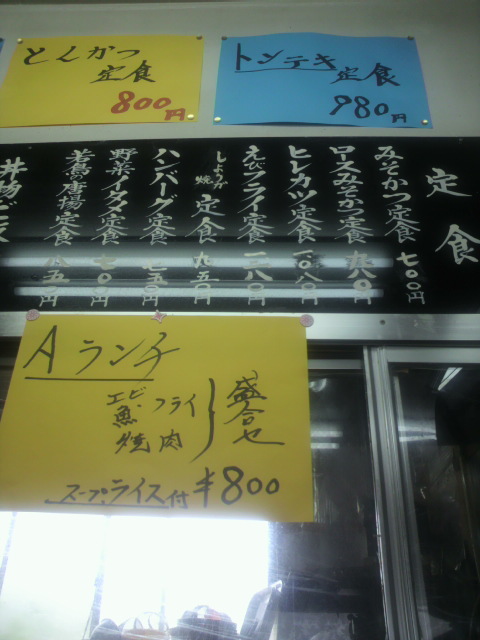 とんかつ
定食
800円
トンテキ定食
980円
定食
みそかつ定食 七〇〇円
ロースみそかつ定食 九八〇円
ヒレカツ定食 一〇八〇
えびフライ定食 一一八〇円
しょうが焼定食 九五〇円
ハンバーグ定食 七五〇円
野菜イタメ定食 七〇〇円
若鳥唐揚定食 八五〇円
Aランチ
エビ
魚・フライ
焼肉
盛合せ
スープ、ライス付 ¥800